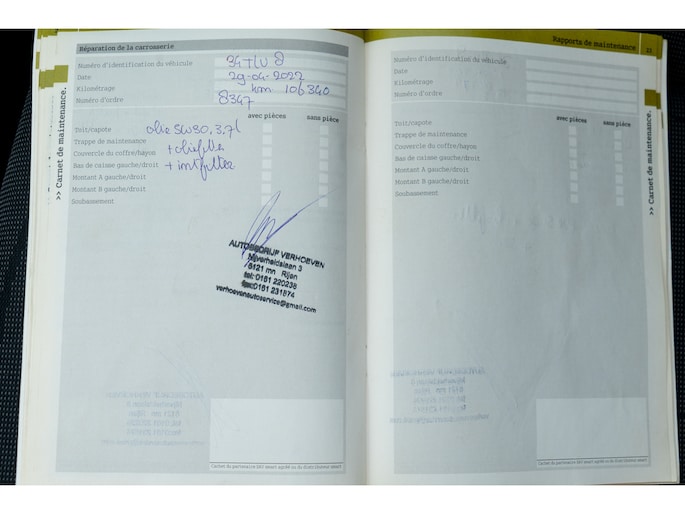 Réparation de la carrosserie
Numéro d'identification du véhicule
Date 29-04-2022
Kilométrage km 106340
Numéro d'ordre 8347
avec pièces sans pièce
Toit/capote olie 5W30, 3.7l
Trappe de maintenance + oliefilter
Couvercle du coffre/hayon
Bas de caisse gauche/droit
Montant A gauche/droit
Montant B gauche/droit
Soubassement
AUTOBEDRIJF VERHOEVEN
Nijverheidslaan 3
5121 mn Rijen
tel: 0161 220238
fax: 0161 231874
verhoevenautoservice@gmail.com
>> Carnet de maintenance.
Rapports de maintenance
Numéro d'identification du véhicule
Date
Kilométrage
Numéro d'ordre
avec pièces sans pièce
Toit/capote
Trappe de maintenance
Couvercle du coffre/hayon
Bas de caisse gauche/droit
Montant A gauche/droit
Montant B gauche/droit
Soubassement
>> Carnet de maintenance.